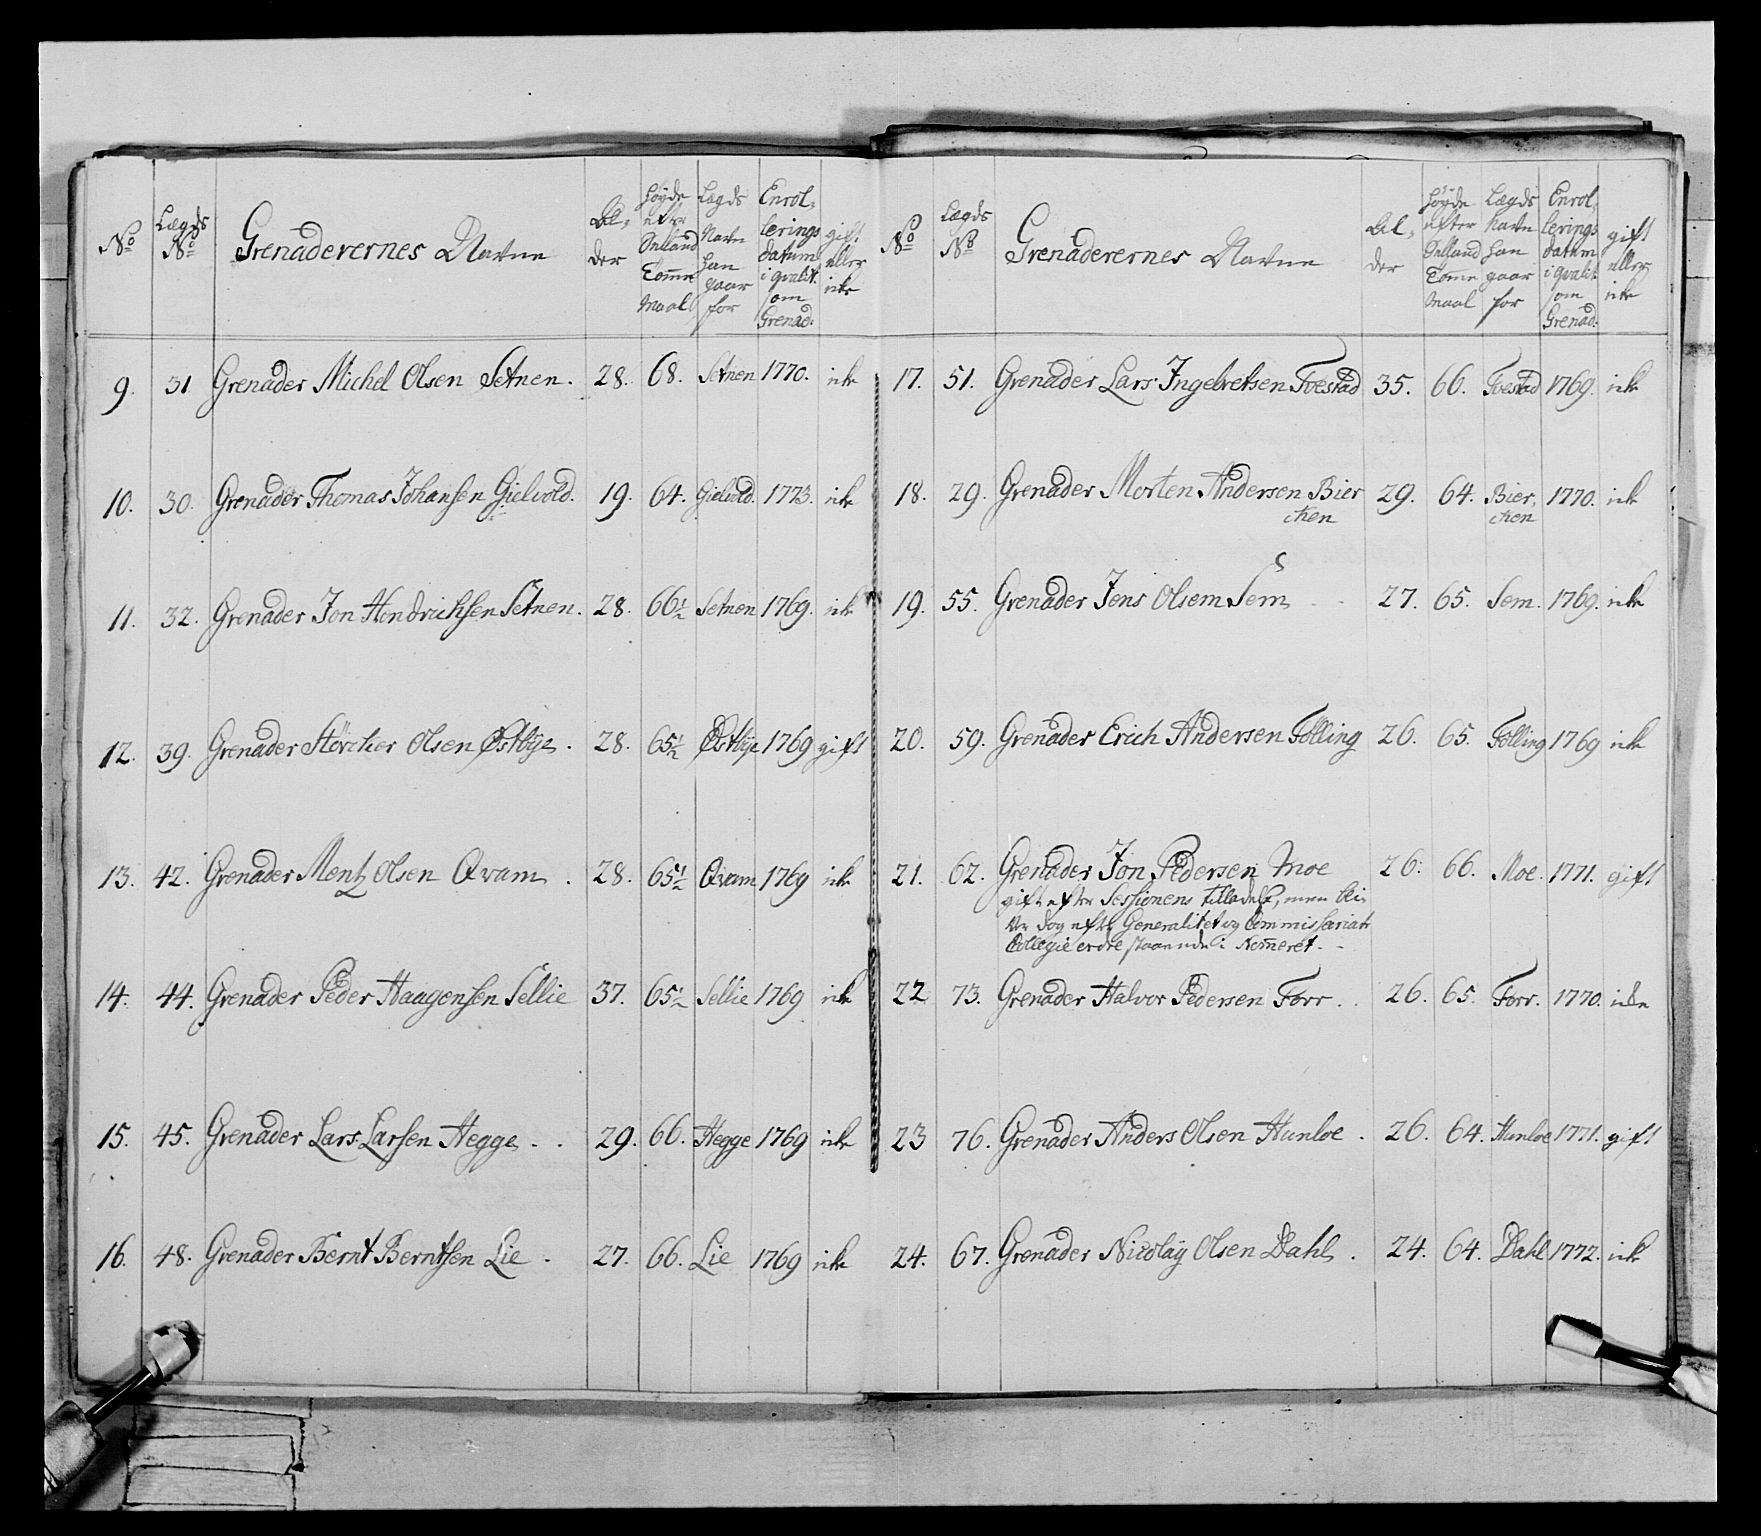 No Lægds No Grenaderernes Navne Al- der Høyde efter Sielland Tomme Maal Lægds Navn han gaar for Enrol- lerings datum i qvalit. som Grenad: gift eller icke
9. 31 Grenader Michel Olsen Setnen. 28. 68. Setnen 1770. icke
10. 30. Grenader Thomas Johansen Gielvold. 19. 64. Gielvold. 1773. icke
11. 32. Grenader Jon Hendrichsen Setnen. 28. 66½ Setnen 1769. icke
12. 39. Grenader Störcker Olsen Østbÿe. 28. 65½ Østbÿe 1769 gift
13. 42. Grenader Mentz Olsen Qvam. 28. 65½ Qvam 1769 icke
14. 44. Grenader Peder Haagensen Sellie 37. 65½ Sellie 1769 icke
15. 45. Grenader Lars Larsen Hegge. . 29. 66. Hegge 1769 icke
16. 48. Grenader Bernt Berntsen Lie. 27. 66. Lie 1769 icke
No Lægds No Grenaderernes Navne Al- der Høyde efter Sielland Tomme Maal Lægds Navn han gaar for Enrol- lerings datum i qvalit som Grenad: gift eller icke
17. 51. Grenader Lars Ingebretsen Foestad 35. 66. Foestad 1769. icke
18. 29. Grenader Morten Andersen Bier 29. 64. Bier, 1770. icke
cken cken
19. 55. Grenader Jens Olsem Sem 27. 65. Sem. 1769. icke
20. 59. Grenader Erich Andersen Følling 26. 65. Følling 1769 icke
21. 62. Grenader Jon Pedersen Moe 26: 66. Moe. 1771. gift
gift efter Sessionens tilladelse, men bli-
ver dog efter Generalitet og Commissariats
Collegie ordre staaende i Nomeret.
22 73. Grenader Halvor Pedersen Forr. 26. 65. Forr. 1770. icke
23 76. Grenader Anders Olsen Hunloe. 26. 64. Hunloe 1771. gift
24. 67. Grenader Nicolaÿ Olsen Dahl. 24. 64. Dahl 1772. icke